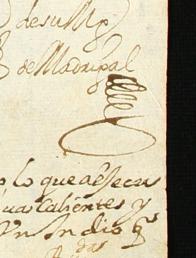 de su Mg
de Madrigal
lo que a de secu
uas Calientes y
Un Indio q